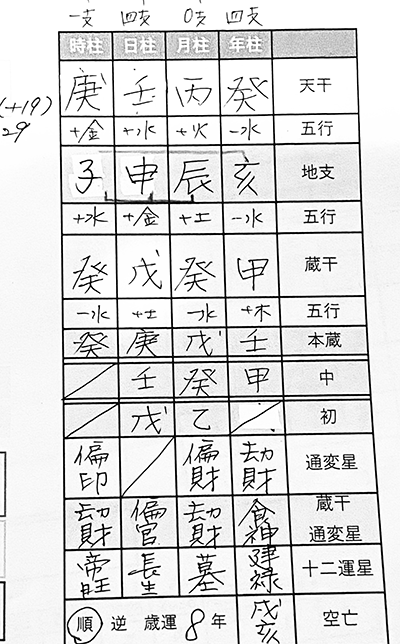 一支 四支 0支 四支
時柱 日柱 月柱 年柱
庚 壬 丙 癸 天干
(+19)
29
+金 +水 +火 -水 五行
子 申 辰 亥 地支
+水 +金 +土 -水 五行
癸 戊 癸 甲 蔵干
-水 +土 -水 +木 五行
癸 庚 戊 壬 本蔵
壬 癸 甲 中
戊 乙 初
偏印 偏財 劫財 通変星
劫財 偏官 劫財 食神 蔵干通変星
帝旺 長生 墓 建禄 十二運星
順 逆 歳運 8年 戌亥 空亡